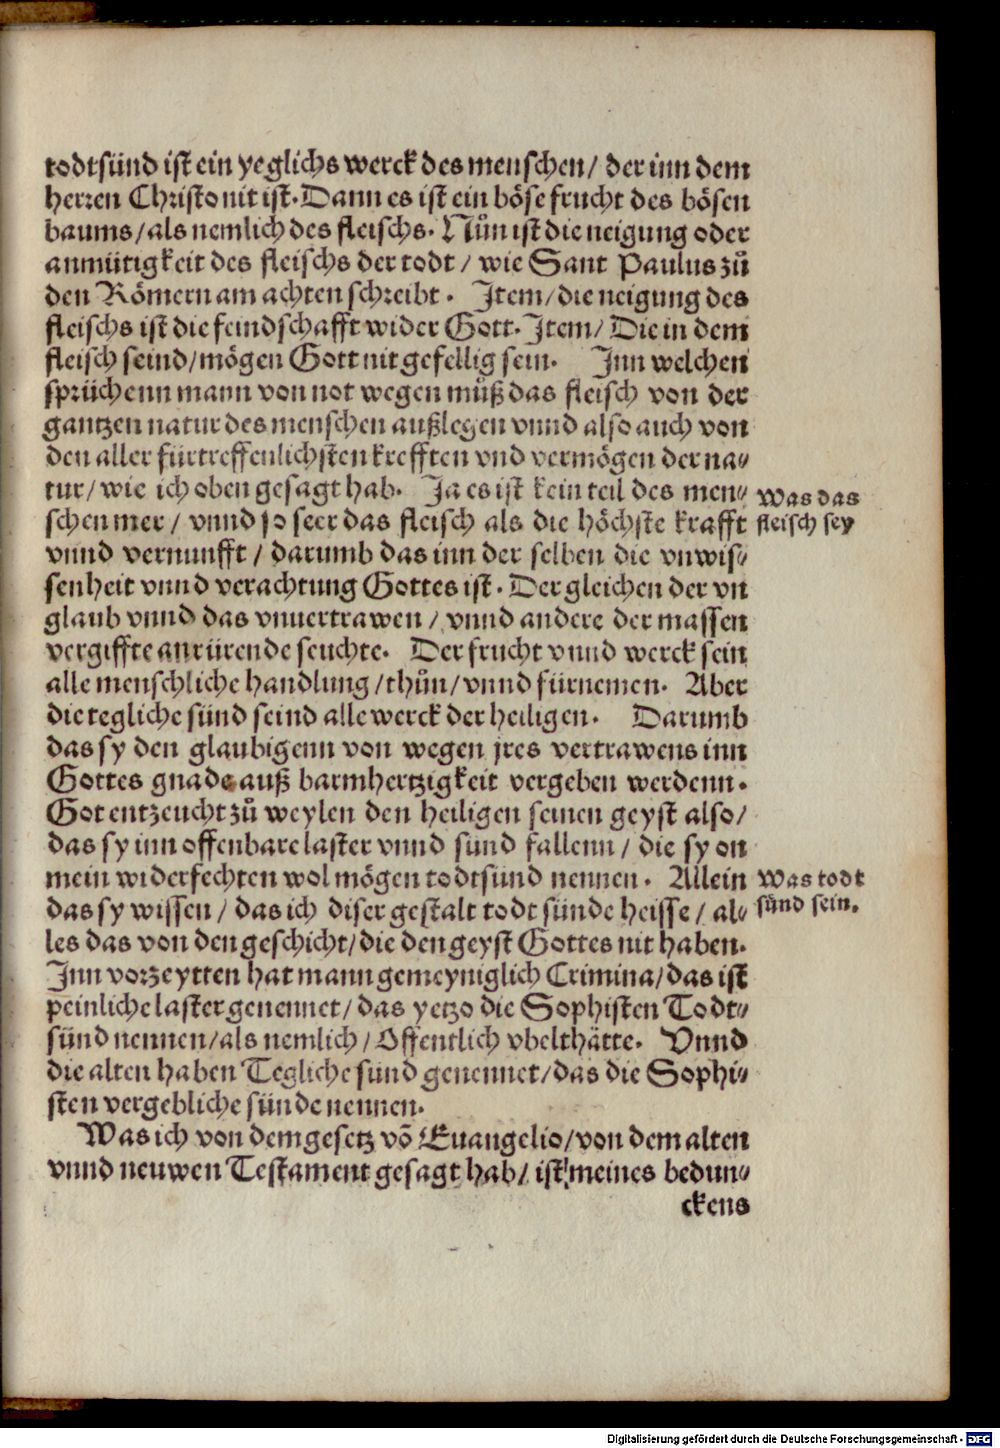 todtsünd ist ein yeglichs werck des menschen/ der inn dem
herren Christo nit ist. Dann es ist ein böse frucht des bösen
baums/als nemlich des fleischs. Nůn ist die neigung oder
anmütigkeit des fleischs der todt / wie Sant Paulus zů
den Römern am achten schreibt. Item/die neigung des
fleischs ist die feindschafft wider Gott. Item/ Die in dem
fleisch seind/mögen Gott nit gefellig sein. Inn welchen
sprüchenn mann von not wegen můß das fleisch von der
gantzen natur des menschen außlegen vnnd also auch von
den aller fürtreffenlichsten krefften vnd vermögen der na⸗
tur/ wie ich oben gesagt hab. Ja es ist kein teil des men⸗
schen mer / vnnd so seer das fleisch als die höchste krafft
vnnd vernunfft / darumb das inn der selben die vnwis⸗
senheit vnnd verachtung Gottes ist. Der gleichen der vn
glaub vnnd das vnuertrawen / vnnd andere der massen
vergiffte anrürende seuchte. Der frucht vnnd werck sein
alle menschliche handlung /thůn/ vnnd fürnemen. Aber
die tegliche sünd seind alle werck der heiligen. Darumb
das sy den glaubigenn von wegen jres vertrawens inn
Gottes gnade auß barmhertzigkeit vergeben werdenn.
Got entzeucht zů weylen den heiligen seinen geyst also/
das sy inn offenbare laster vnnd sünd fallenn / die sy on
mein widerfechten wol mögen todtsünd nennen. Allein
das sy wissen / das ich diser gestalt todt sünde heisse / al⸗
les das von den geschicht/die den geyst Gottes nit haben.
Inn vorzeytten hat mann gemeyniglich Crimina/das ist
peinliche laster genennet/ das yetzo die Sophisten Todt⸗
sünd nennen/als nemlich / Offentlich vbelthätte. Vnnd
die alten haben Tegliche sünd genennet/das die Sophi⸗
sten vergebliche sünde nennen.
Was ich von dem gesetz võ Euangelio/von dem alten
vnnd neuwen Testament gesagt hab/ ist meines bedun⸗
ckens
Was das
fleisch sey
Was todt
sünd sein.
Digitalisierung gefördert durch die Deutsche Forschungsgemeinschaft - DFG